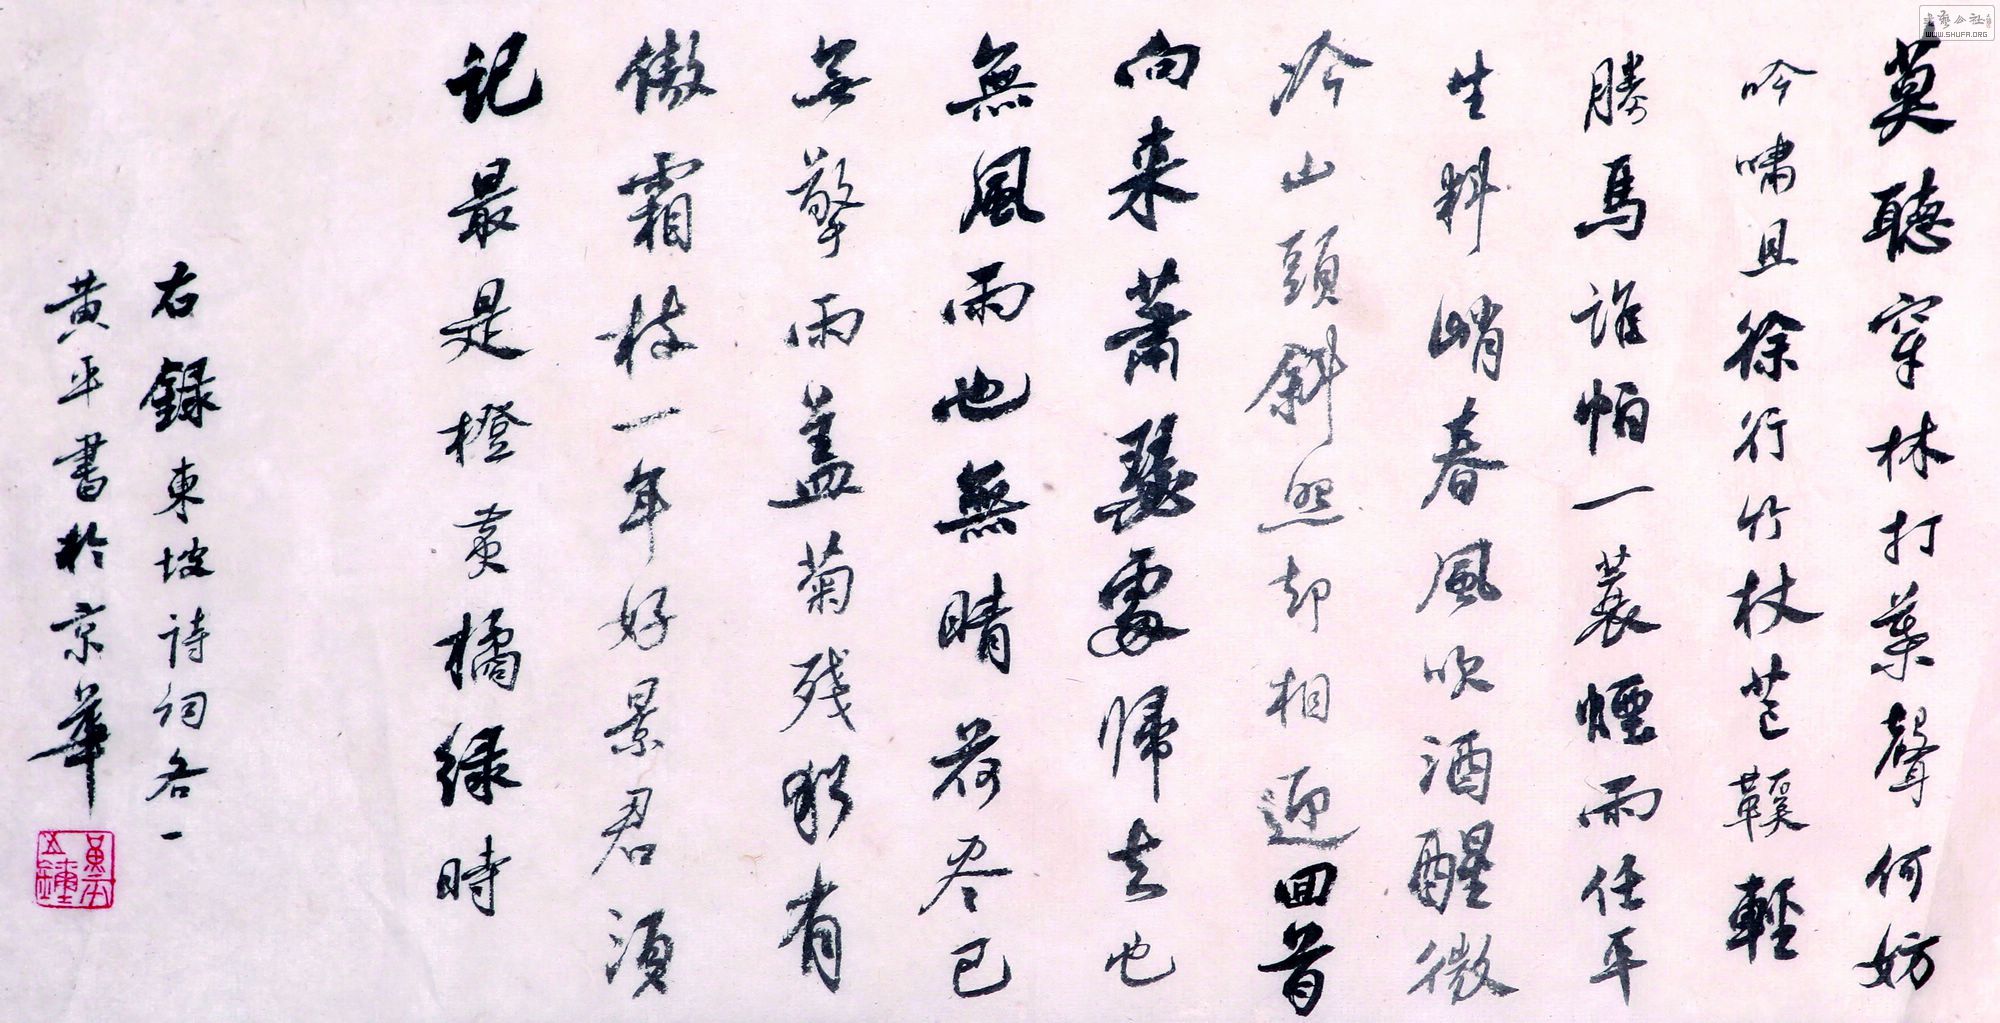 莫聽穿林打葉聲何妨
吟嘯且徐行竹杖芒鞵輕
勝馬誰怕一蓑煙雨任平
生料峭春風吹酒醒微
冷山頭斜照却相迎回首
向来蕭瑟處歸去也
無風雨也無晴荷尽已
無擎雨盖菊残猶有
傲霜枝一年好景君須
記最是橙黄橘緑時
右録東坡詩词各一
黄平書於京華
書藝公社
WWW.SHUFA.ORG